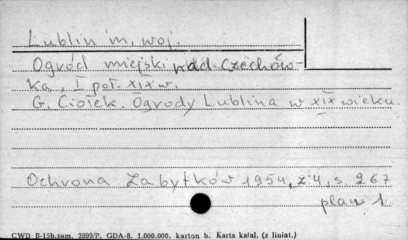 Lublin m. woj.
Ogród miejski nad Czechów-
ką, I poł. XIX w.
G. Ciołek. Ogrody Lublina w XIX wieku.
Ochrona Zabytków 1954, z. 4, s. 267
plan 1
CWD B-15b.zam. 2899/P. GDA-8. 1.000.000. karton b. Karta katal. (z liniat.)